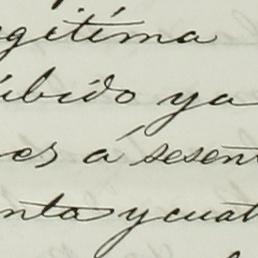 egítima
úbido ya
es á sesen
nta y cuat